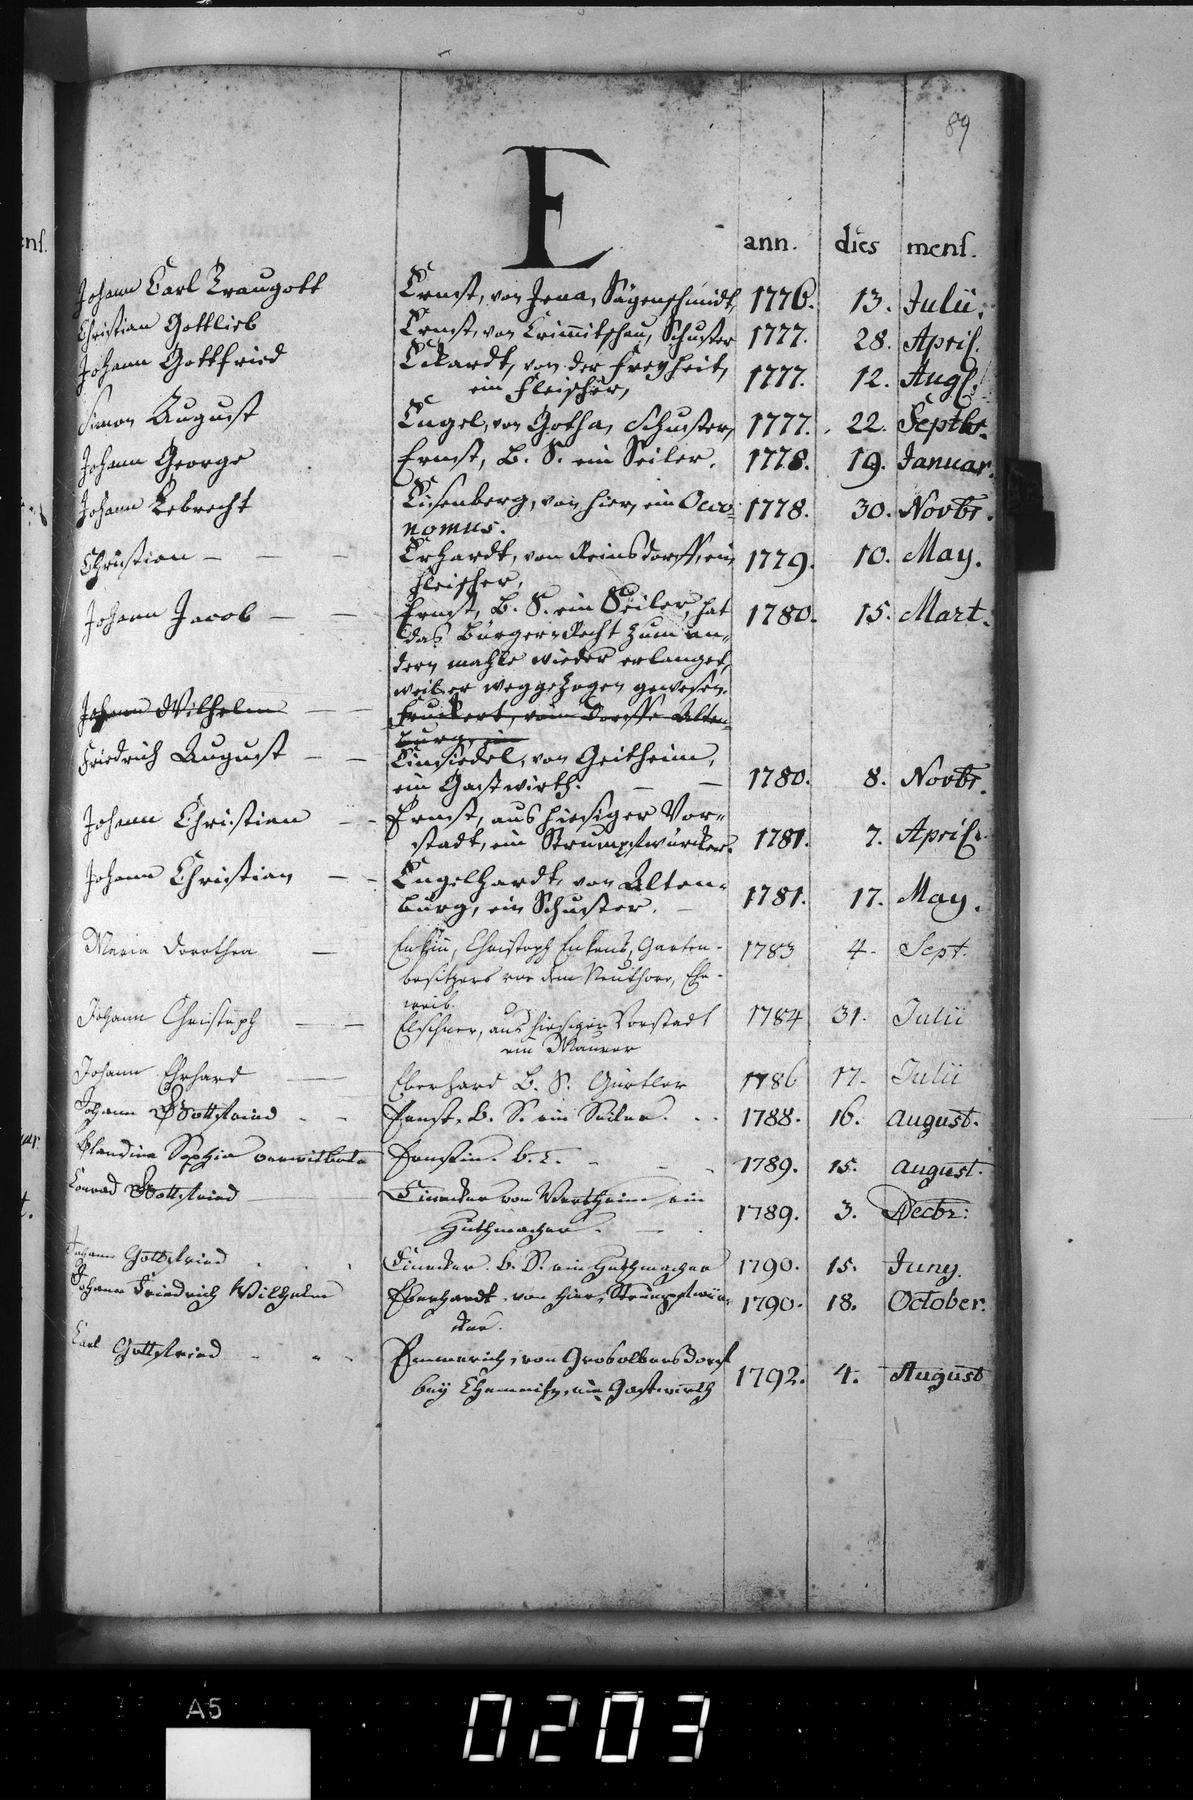 89
E
ann. dies mens.
Johann Carl Traugott Ernst, von Jena, Sägenschmidt, 1776. 13. Julii.
Christian Gottlieb Ernst, von Crimitschau, Schuster 1777. 28. April.
Johann Gottfried Eckardt, von der Freyheit, 1777. 12. Aug.
ein Fleischer,
Simon August Engel, von Gotha, Schuster, 1777. 22. Septbr.
Johann George Ernst, B. S. ein Seiler. 1778. 19. Januar.
Johann Lebrecht Eisenberg, von hier, ein Oeco- 1778. 30. Novbr.
nomus.
Christian — — — Erhardt, von Reinsdorff, ein 1779. 10. May.
Fleischer.
Johann Jacob — — Ernst, B. S. ein Seiler, hat 1780. 15. Mart.
das Bürger-Recht zum an-
dern mahle wieder erlanget,
weil er weggezogen gewesen.
Johann Wilhelm — — vom Dorffe Alten-
burg, ein
Friedrich August — — Einsiedel, von Geitheim,
ein Gastwirth. — — 1780. 8. Novbr.
Johann Christian — Ernst, aus hiesiger Vor-
stadt, ein Strumpfwürcker. 1781. 7. April.
Johann Christian — — Engelhardt, von Alten-
burg, ein Schuster. — 1781. 17. May.
Maria Dorothea — Christoph Garten- 1783 4. Sept.
besitzers vor dem Neuthore, Ehe-
weib.
Johann Christoph — — Elschner, aus hiesiger Vorstadt 1784 31. Julii
ein Maurer
Johann Ehrhard — Eberhard B. S. Gürtler 1786 17. Julii
Johann Gottfried - - Ernst, B. S. ein Seiler. - - 1788. 16. August.
Blandina Sophia verwitbete Ernstin. B. T. - - - 1789. 15. August.
Conrad Gottfried — Einecker von Wertheim ein
Huthmacher. — . 1789. 3. Decbr:
Johann Gottfried . . . Einecker. B. S. ein Huthmacher 1790. 15. Juny.
Johann Friedrich Wilhelm Eberhardt von hier, Strumpfwür- 1790. 18. October.
cker.
Carl Gottfried - - - Emmerich, von Grosolbersdorf
bey Chemnitz, ein Gastwirth 1792. 4. August
A5
0203